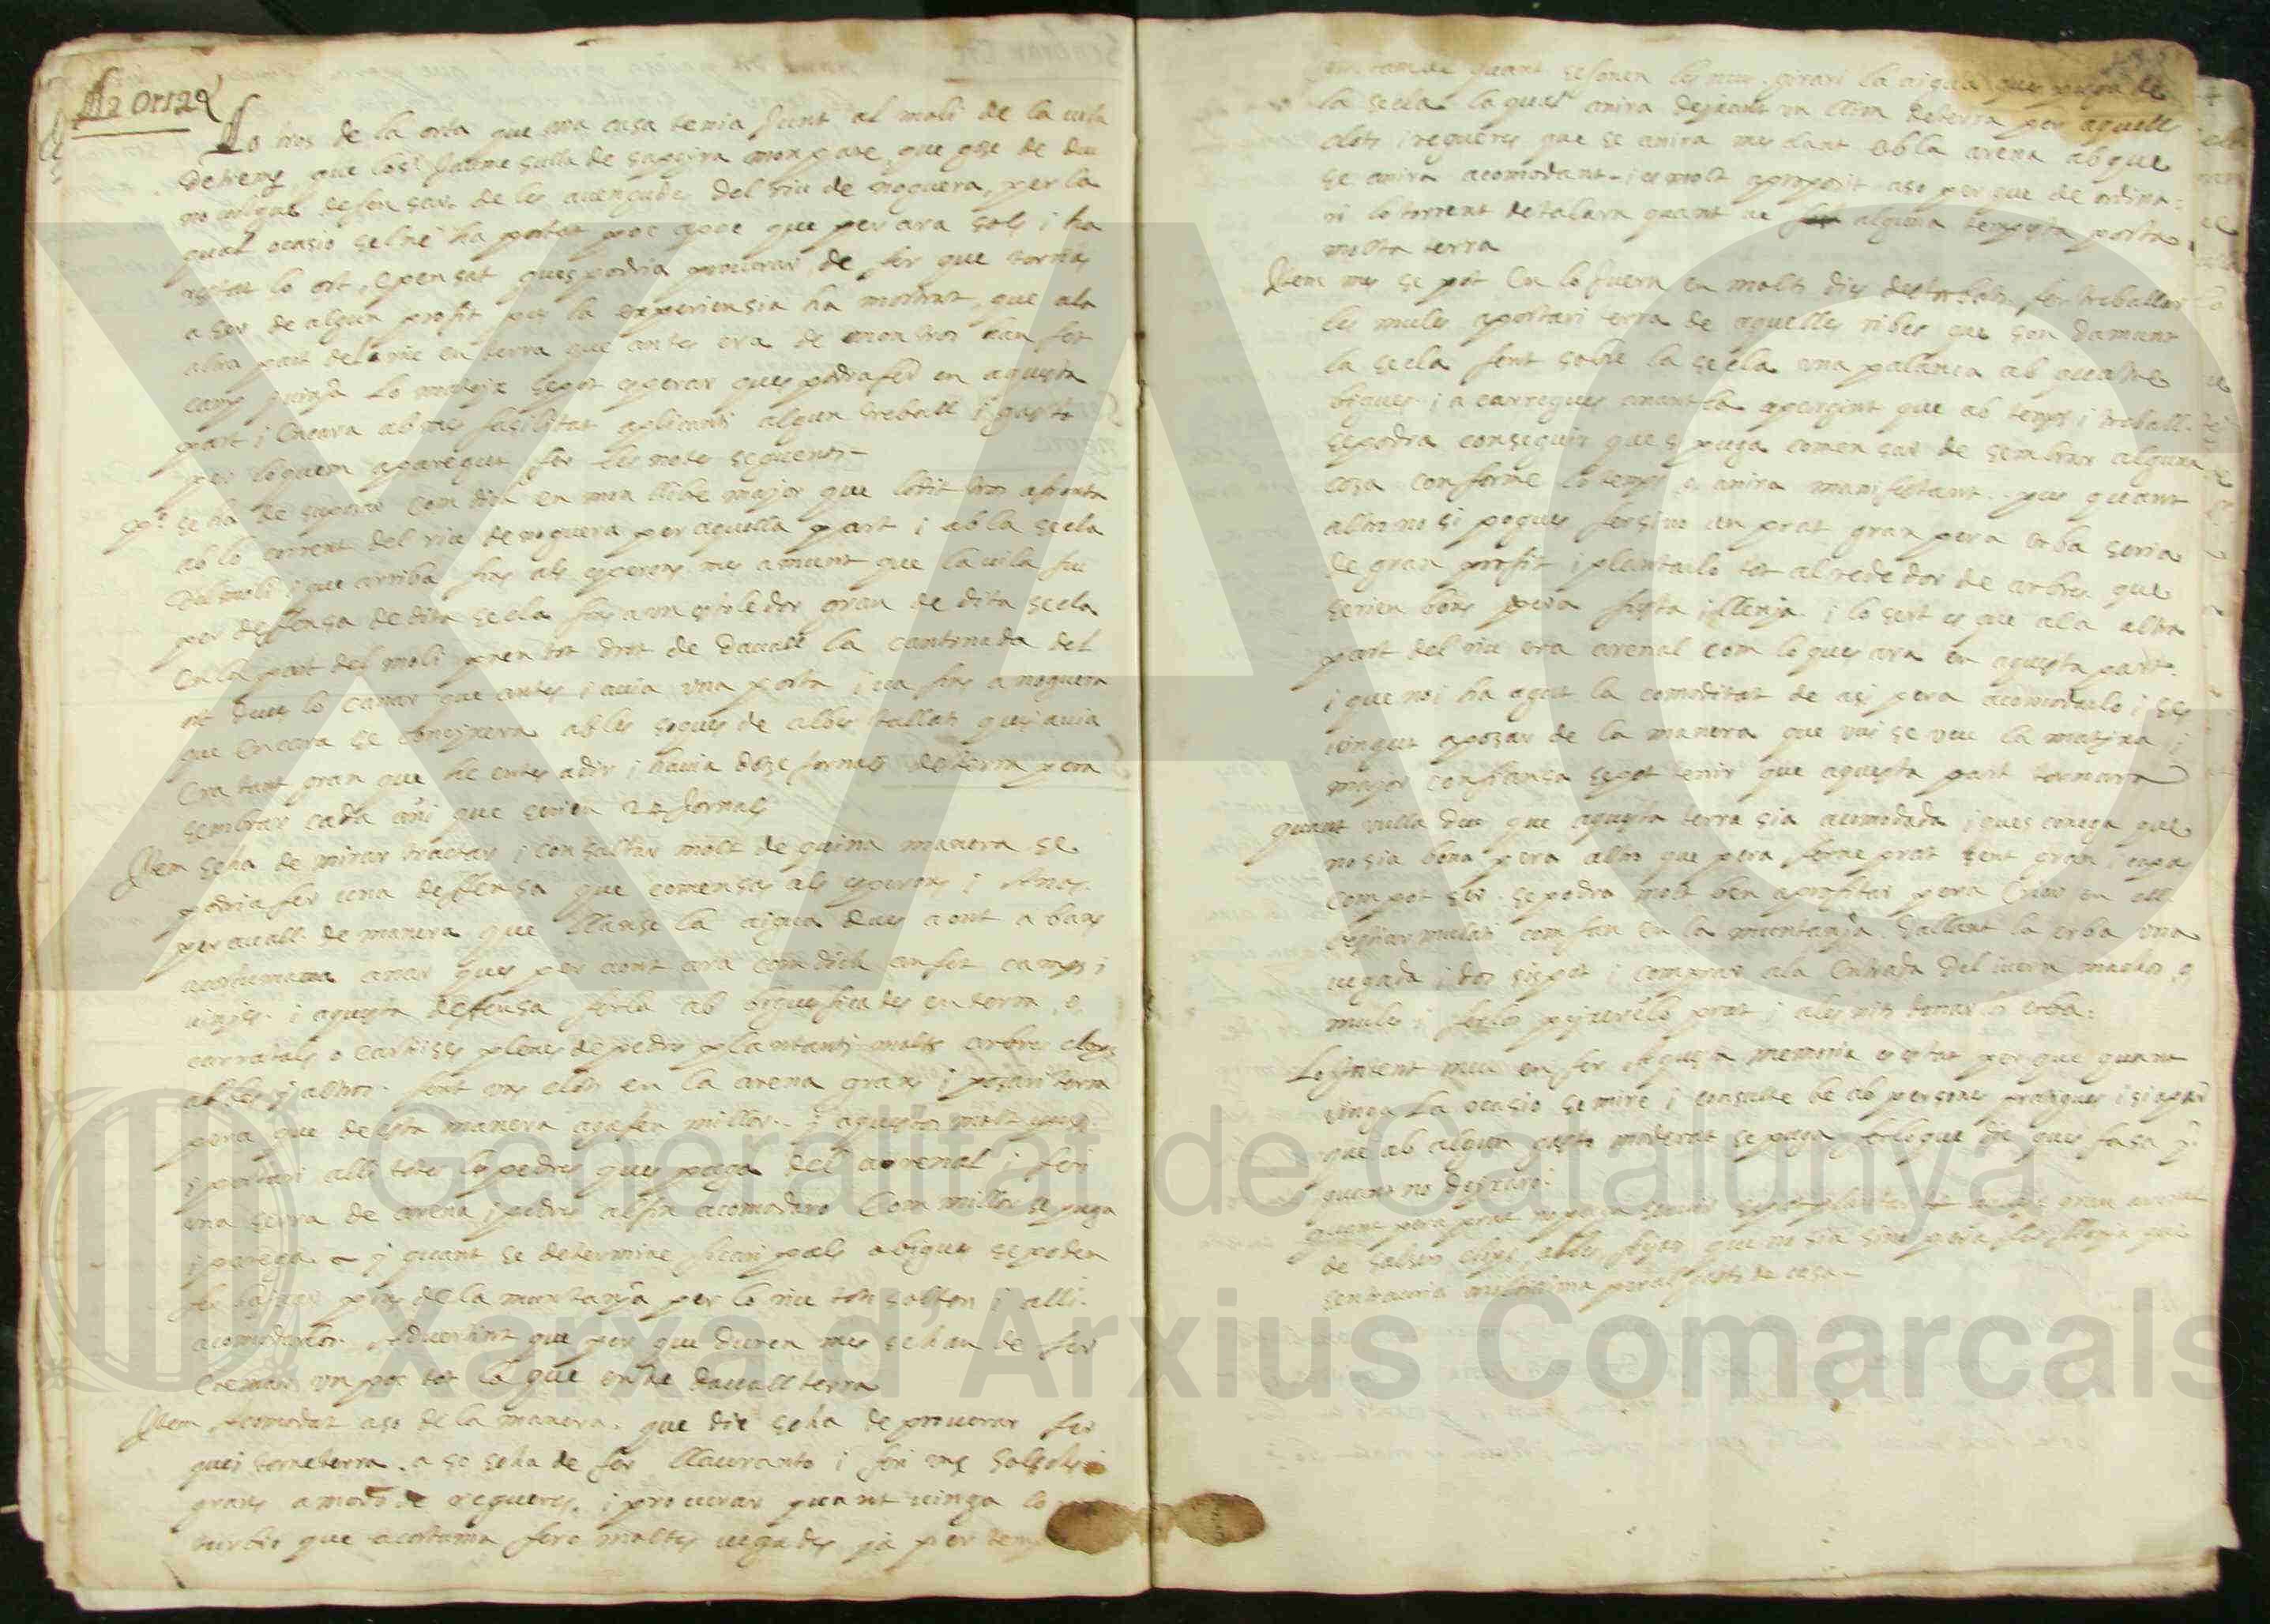 La orta
Lo tros de la orta que ma casa tenia junt al moli de la vila
de tremp, que lo sr Jaume sulla de sapeira mon pare, que gose de deu
no volgue defensar de les avengudes del riu de noguera, per la
qual ocasio selne ha portat poc apoc que per ara sols i ha
restat lo ort, e pensat ques podria procurar de fer que tornas
a ser de algun profit pus la experiensia ha mostrat que ala
altra part del riu en terra que antes era de mon tros han fet
camp i vinya lo mateix sepot esperar ques podra fer en aquesta
part i encara ab mes facilitat aplicanti algun treball i gasto
per loquem aparegut fer les notes seguents
se ha de suposar com dita en mon llibre major que lo dit tros afronta
ab lo corrent del riu de noguera per aquella part i ab la secla
del moli i que arriba fins als esperons mes amunt que la vila feu
per deffensa de dita secla fins a un estoledor gran de dita secla
en la part del moli pren tot dret de davall la cantonada del
ort dues lo canar que antes i avia una porta i va fins a noguera
que encara se coneixera ab les soques de albes tallats ques avia
era tant gran que he entes adir i havia dotse jornals de terra pera
sembrar cada ani que serien 24 Jornals
Item seha de mirar tractar i consultar molt de quina manera se
podria fer una deffensa que comensas als esperons i anas
per avall de manera que llanse la aigua dues aont abans
acostumava anar ques per aont ara com dich an fet camps i
vinyes. i aquesta defensa ferla ab bigues ficades en terra, o
carratals o cabises plenes de pedres plantanti molts arbres
albes i altres fent uns clots en la arena grans i posari terra
pera que de esta manera agafen millor. i aquestos molt espesos
i portari alli totes les pedres ques puga del arenal i feri
una serra de arena i pedres alfin acomodaro Com millor se puga
i parega i quant se determine ficari pals o bigues se poden
fer baixar pins de la muntanya per lo riu tots solters i alli
acomodarlos. Advertint que per que duren mes se han de fer
cremar un poc tot lo que entre davall terra
Item Acomodat aso de la manera que dic seha de procurar fer
quei torne terra. a so seha de fer llauranto i feri uns solsols
grans a modo de regueres. i procurar quant vinga lo
turbio que acostuma fero moltes vegades ja per temp
quant se fonen les neus girari la aigua ques puga de
la secla laqual anira deixant un llim de terra per aquells
clots i regueres que se anira mesclant ab la arena ab que
se anira acomodant i es molt aproposit aso per que de ordina:
ri lo torrent de talarn quant ve alguna tempesta porta
molta terra
Item mes se pot en lo ivern en molts dies destorbats fer treballar
les mules aportari terra de aquelles ribes que son damunt
la secla fent sobre la secla una palanca ab quatre
bigues i a carregues anantla espargint que ab temps i treball
sepodra conseguir que si puga comensar de sembrar alguna
cosa conforme lo temps o anira manifestant. pus quant
altro no si pogues fer sino un prat gran pera erba seria
de gran profit i plantarlo tot alrededor de arbres que
serien bons pera fusta i llenya. i lo sert es que ala altra
part del riu era arenal com lo ques ara en aquesta part
i que noi ha agut la comoditat de asi pera acomodarlo i ses
vingut aposar de la manera que vui se veu la mateixa i
major confiansa sepot tenir que aquesta part tornara
quant vulla deu que aquesta terra sia acomodada i ques conega que
no sia bona pera altro que pera ferne prat sent gran i capas
com pot ser. se podra molt ben aprofitar pera criar en ell
bestiar mulati com fan en la muntanya. dallant la erba una
vegada i dos sispot i comprar ala entrada del ivern matxos o
mules i ferlos peixer e lo prat i ales nits donarli erba:
Lo Intent meu en fer Aquesta memoria es estat per que quant
vinga la ocasio se mire i consulte be ab persones pratiques i si apar
que ab algun gasto moderat se puga fer lo que dic ques fasa i
quant no deixaro.
quant pera prat no puga servir sepot plantar
de salsers albes que no sia sino pera fer llenya
sentrauria moltissima peral gasto de casa